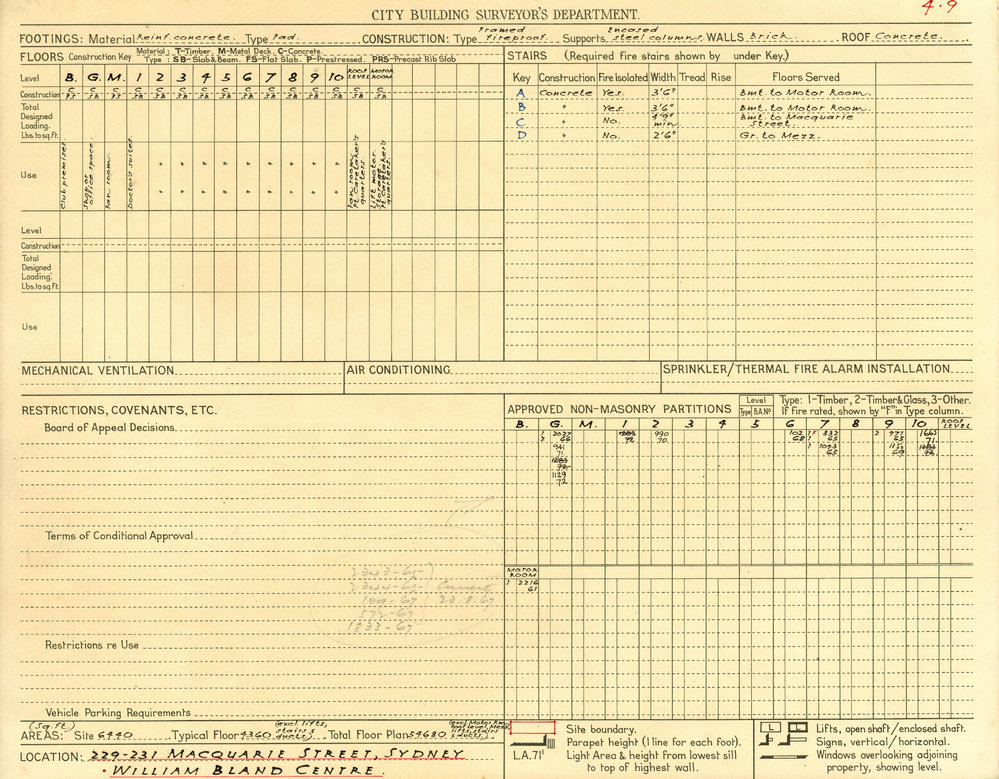 4.9
CITY BUILDING SURVEYOR'S DEPARTMENT.
FOOTINGS: Material Reinf. concrete. Type Pad. CONSTRUCTION: Type Framed fireproof. Supports Encased steel columns. WALLS Brick. ROOF Concrete.
FLOORS Construction Key Material: T-Timber. M-Metal Deck. C-Concrete.
Type: SB-Slab & Beam. FS-Flat Slab. P-Prestressed. PRS-Precast Rib Slab
Level B. G. M. 1 2 3 4 5 6 7 8 9 10 ROOF LEVEL MOTOR ROOM
Construction C FS C SB C FS C SB C SB C SB C SB C SB C SB C SB C SB C SB C SB C SB C SB
Total Designed Loading. Lbs. to sq. ft.
Use Club premises. Shop or office space. Fan room. Doctor's suites " " " " " " " " " Fan room. Pt. Caretaker's quarters. Lift motor. Storage. Pt. Caretaker's quarters.
Level
Construction
Total Designed Loading. Lbs. to sq. ft.
Use
STAIRS (Required fire stairs shown by under Key.)
Key Construction Fire Isolated Width Tread Rise Floors Served
A Concrete Yes. 3'6" Bmt. to Motor Room.
B " Yes. 3'6" Bmt. to Motor Room.
C " No. 4'9" min Bmt. to Macquarie Street.
D " No. 2'6" Gr. to Mezz.
MECHANICAL VENTILATION
AIR CONDITIONING
SPRINKLER/THERMAL FIRE ALARM INSTALLATION
RESTRICTIONS, COVENANTS, ETC.
Board of Appeal Decisions.
Terms of Conditional Approval
2343-65
2344-65
109-67
572-67
1833-67
Current
23.8.67
Restrictions re Use
Vehicle Parking Requirements
APPROVED NON-MASONRY PARTITIONS
Level
Type B.A. Nº
Type: 1-Timber, 2-Timber & Glass, 3-Other.
If Fire rated, shown by "F" in Type column.
B. G. M. 1 2 3 4 5 6 7 8 9 10 ROOF LEVEL
1 2027 1283 990 102 1F 832 2 971 1663
2 66 72 70 68 1 65 65 71
941 1 1043
71 65 69 72
1129
72
MOTOR ROOM
1 2216
61
(Sq. ft.) (excl. lifts, stairs & ducts)
AREAS: Site 6440 Typical Floor 4360 Total Floor Plan 54680
LOCATION: 229-231 MACQUARIE STREET, SYDNEY
• WILLIAM BLAND CENTRE.
Site boundary.
Parapet height (1 line for each foot).
L.A. 71' Light Area & height from lowest sill to top of highest wall.
L Lifts, open shaft/enclosed shaft.
Signs, vertical/horizontal.
Windows overlooking adjoining property, showing level.